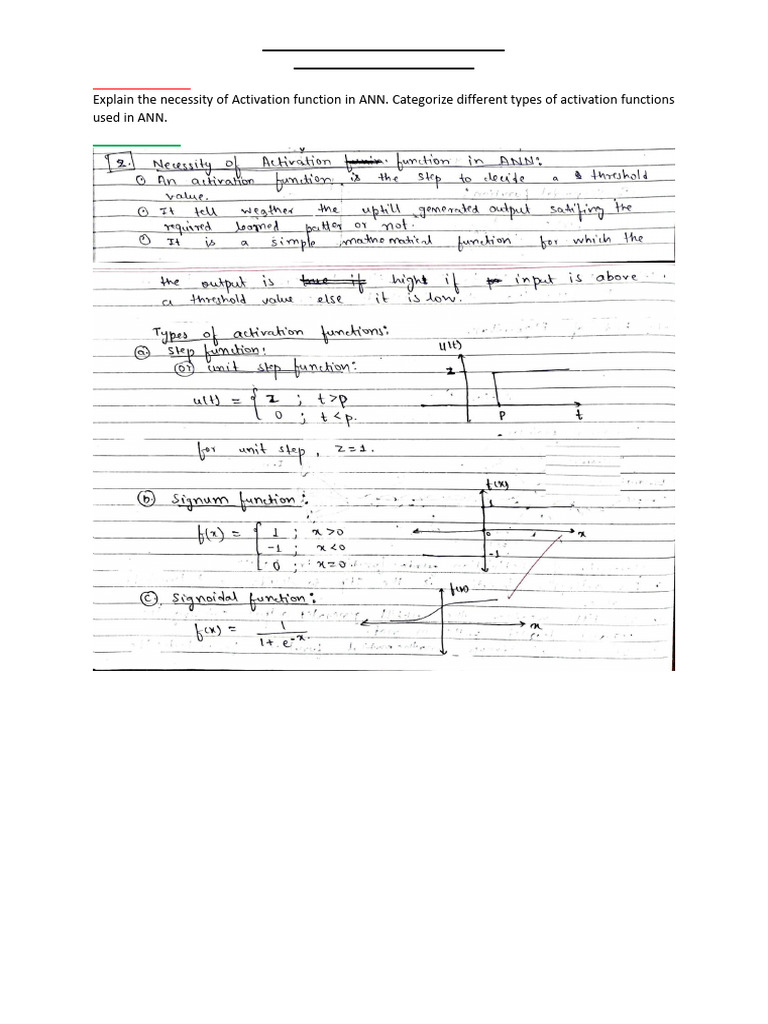 Explain the necessity of Activation function in ANN. Categorize different types of activation functions
used in ANN.
2. Necessity of Activation function in ANN:
① An activation function is the step to decide a threshold
value.
① It tell weather the uptill generated output satifing the
required learned patter or not.
② It is a simple mathematical function for which the
the output is hight if input is above
a threshold value else it is low.
Types of activation functions:
(a) step function:
(or) unit step function:
u(t) = { z ; t>p
0 ; t<p.
u(t)
z
p t
for unit step, z=1.
(b) Signum function:
f(x) = { 1 ; x>0
-1 ; x<0
0 ; x=0
f(x)
1
0 x
-1
(c) Signoidal function:
f(x) = 1
1+ e^-x.
f(x)
x